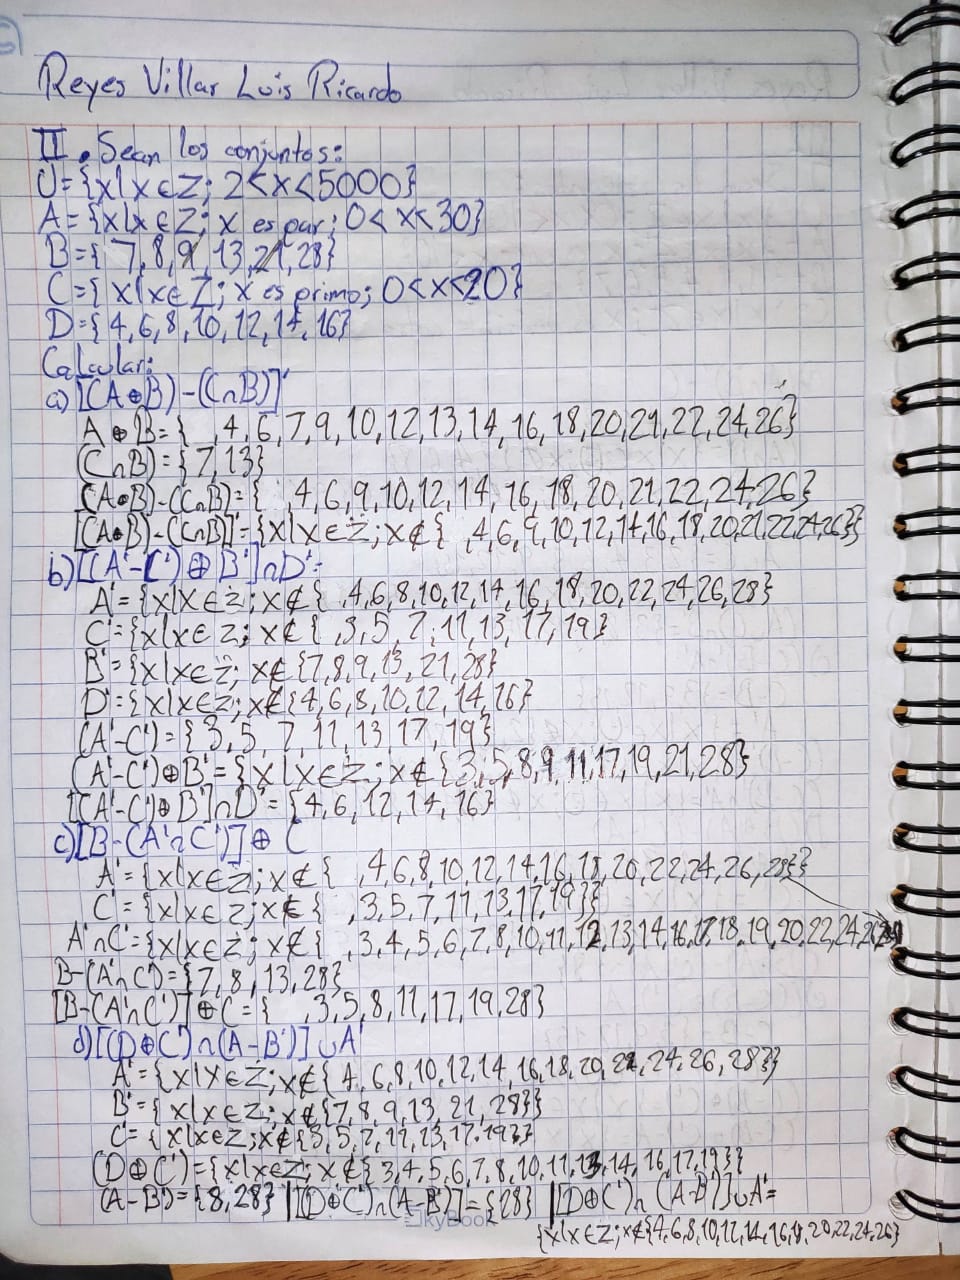 Reyes Villar Luis Ricardo
II. Sean los conjuntos:
U={x|x∈Z; 2<x<5000}
A={x|x∈Z; x es par; 0<x<30}
B={7,8,9,13,21,28}
C={x|x∈Z; x es primo; 0<x<20}
D={4,6,8,10,12,14,16}
Calcular:
a) [(A⊕B)-(C∩B)]'
A⊕B={ ,4,6,7,9,10,12,13,14,16,18,20,21,22,24,26}
(C∩B)={7,13}
(A⊕B)-(C∩B)={ ,4,6,9,10,12,14,16,18,20,21,22,24,26}
[(A⊕B)-(C∩B)]'={x|x∈Z;x∉{ ,4,6,9,10,12,14,16,18,20,21,22,24,26}}
b) [(A'-C')⊕B']∩D'=
A'={x|x∈Z;x∉{ ,4,6,8,10,12,14,16,18,20,22,24,26,28}
C'={x|x∈Z; x∉{ ,3,5,7,11,13,17,19}
B'={x|x∈Z; x∉{7,8,9,13,21,28}
D'={x|x∈Z;x∉{4,6,8,10,12,14,16}
(A'-C')={3,5,7,11,13,17,19}
(A'-C')⊕B'={x|x∈Z;x∉{3,5,8,9,11,17,19,21,28}
[(A'-C')⊕B']∩D'={4,6,12,14,16}
c) [B-(A'∩C')]⊕C
A'={x|x∈Z;x∉{ ,4,6,8,10,12,14,16,18,20,22,24,26,28}}
C'={x|x∈Z;x∉{ ,3,5,7,11,13,17,19}}
A'∩C'={x|x∈Z; x∉{ ,3,4,5,6,7,8,10,11,12,13,14,16,17,18,19,20,22,24,26
B-(A'∩C')={7,8,13,28}
[B-(A'∩C')]⊕C={ ,3,5,8,11,17,19,28}
d) [(D⊕C')∩(A-B')]∪A'
A'={x|x∈Z;x∉{4,6,8,10,12,14,16,18,20,22,24,26,28}}
B'={x|x∈Z;x∉{7,8,9,13,21,28}}
C'={x|x∈Z;x∉{3,5,7,11,13,17,19}}
(D⊕C')={x|x∈Z;x∉{3,4,5,6,7,8,10,11,12,13,14,16,17,19}}
(A-B')={8,28} | [(D⊕C')∩(A-B')]={28} | [(D⊕C')∩(A-B')]∪A'=
{x|x∈Z;x∉{4,6,8,10,12,14,16,18,20,22,24,26}
SkyBook